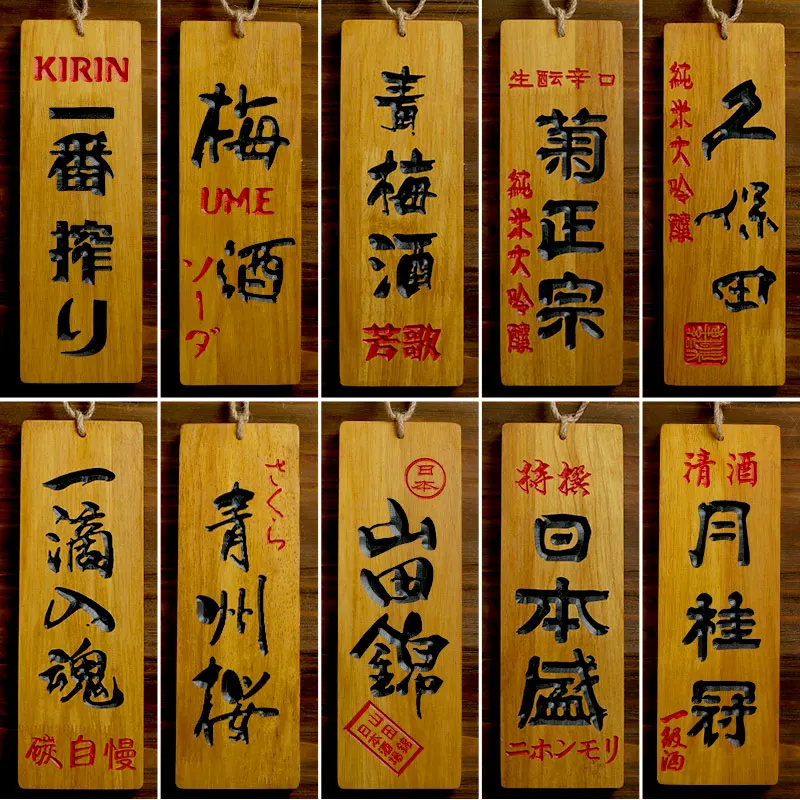 KIRIN
一番搾り
梅
UME
酒
ソーダ
青梅酒
苦歌
生酛辛口
純米大吟醸
菊正宗
純米大吟醸
久保田
一滴入魂
碳自慢
さくら
青州桜
日本
山田錦
山田錦
日本酒場
特撰
日本盛
ニホンモリ
清酒
月桂冠
一級酒